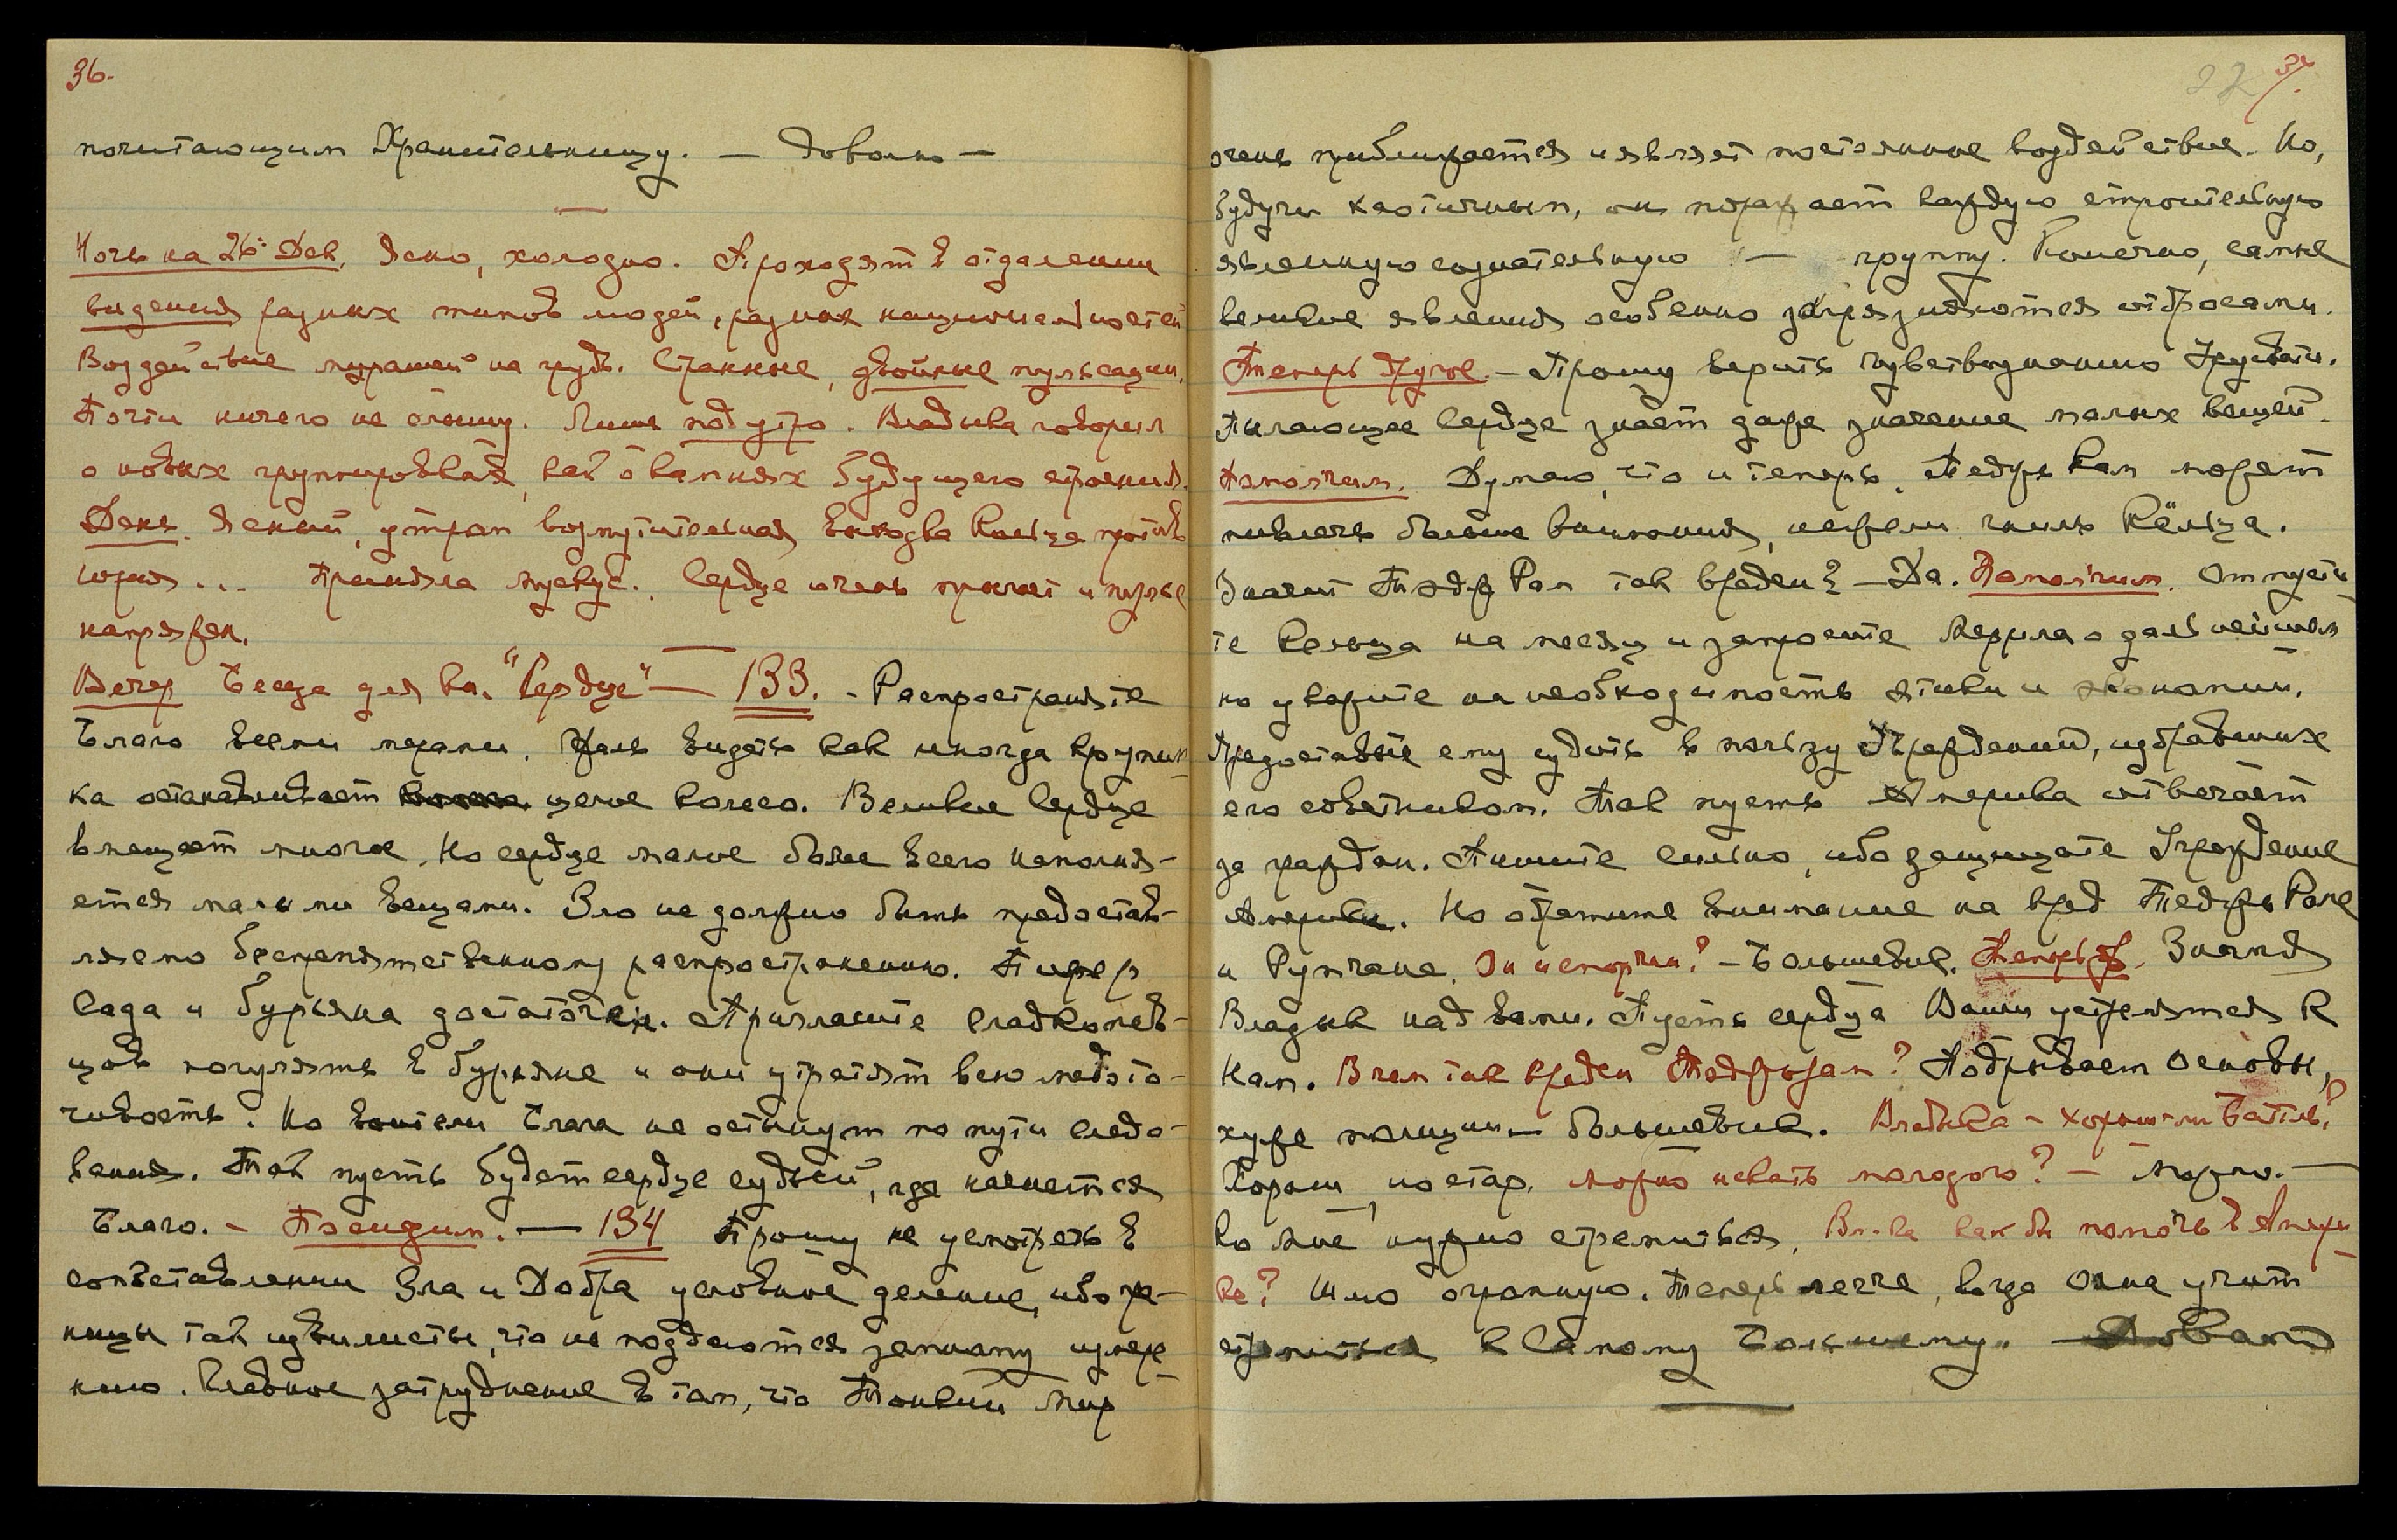 36.
почитающим Хранительницу. — Довольно —
Ночь на 26ое Дек. Ясно, холодно. Проходят в отдалении
видения разных типов людей, разных национальностей
Воздействие мурашей на грудь. Странные, двойные пульсации.
Почти ничего не слышу. Лишь под утро. Владыка говорил
о новых группировках, как о камнях будущего строения.
День. Ясный, утром возмутительная выходка Кольца против
Юрия... Приняла мускус. Сердце очень прыгает и пульс
напряжен.
Вечер Беседа для кн. "Сердце" — 133. - Распространяйте
Благо всеми мерами. Жаль видеть как иногда крупин-
ка останавливает целое колесо. Великое сердце
вмещает многое. Но сердце малое более всего наполня-
ется малыми вещами. Зло не должно быть предостав-
ляемо беспрепятственному распространению. Пример
сада и бурьяна достаточен. Пригласите сладкопев-
цов погулять в бурьяне и они утратят всю медото-
чивость. Но воители Блага не остынут по пути следо-
вания. Так пусть будет сердце судьёй, где начнется
Благо. - Последим. — 134 Прошу не усмотреть в
сопоставлении Зла и Добра условное деление, ибо гра-
ницы так извилисты, что не поддаются земному измере-
нию. Главное затруднение в том, что Тонкий Мир
22 37.
очень приближается и являет постоянное воздействие. Но,
будучи хаотичным, он поражает каждую строительную
явленную сознательную — группу. Конечно, самые
великие явления особенно загрязняются отбросами.
Теперь другое. - Прошу верить чувствознанию Урусвати.
Пылающее сердце знает даже значение малых вещей.
Помолчим. Думаю, что и теперь, Тедж Рам может
привлечь больше внимания, нежели гниль Кёльца.
Значит Тэдж Рам так вреден? - Да. Помолчим. Отпусти-
те Кельца на месяц и запросите Меррила о дальнейшем
но укажите на необходимость этики и экономии.
Предоставьте ему судить в пользу Учреждений, избравших
его советником. Так пусть Америка отвечает
за граждан. Пишите сильно, ибо защищаете Учреждение
Америки. Но обратите внимание на вред Теджь Рама
и Рупчана. Он испорчен? - Большевик. Теперь др. Знамя
Владык над вами. Пусть сердца Ваши устремятся к
Нам. В чем так вреден Тэджьрам? Подрывает основы,
хуже полиции - большевик. Владыка - хорош-ли Баттль?
Хорош, но стар. можно искать молодого? — Можно. —
Ко Мне нужно стремиться, Вл-ка как бы помочь в Амери-
ке? Шлю охранную. Теперь легче, когда Ояна учит
стремиться к Самому Большему. — Довольно